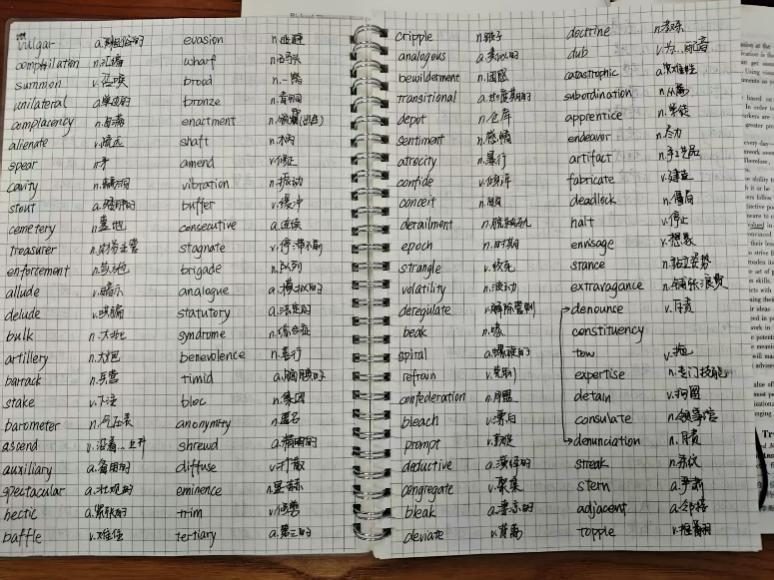 vulgar a.粗俗的 evasion n.逃避
compilation n.汇编 wharf n.码头
summon v.召唤 broad
unilateral a.单边的 bronze n.青铜
complacency n.自满 enactment
alienate v.疏远 shaft n.柄
spear n.矛 amend v.修正
cavity vibration n.振动
stout buffer v.缓冲
cemetery n.墓地 consecutive a.连续
treasurer stagnate v.停滞不前
enforcement n.实施 brigade n.队列
allude v.暗示 analogue a.模拟的
delude v.欺骗 statutory a.法定的
bulk n.大批 syndrome n.综合症
artillery n.大炮 benevolence n.善行
barrack n.兵营 timid a.胆怯的
stake v.下注 bloc n.集团
barometer n.气压表 anonymity n.匿名
ascend v.沿着…上升 shrewd a.精明的
auxiliary a.备用的 diffuse v.扩散
spectacular a.壮观的 eminence n.显赫
hectic a.紧张的 trim v.修剪
baffle v.难住 tertiary a.第三的
cripple doctrine n.教条
analogous a.类似的 dub v.为…配音
bewilderment n.困惑 catastrophic a.灾难性
transitional a.过渡期的 subordination n.从属
depot n.仓库 apprentice n.学徒
sentiment n.感情 endeavor n.尽力
atrocity n.暴行 artifact n.手工艺品
confide fabricate v.建造
conceit deadlock n.僵局
derailment halt v.停止
epoch n.时期 envisage v.想象
strangle v.绞死 stance n.站立姿势
volatility n.波动 extravagance n.铺张浪费
deregulate v.解除管制 denounce v.斥责
beak n.喙 constituency
spiral a.螺旋的 tow v.拖
refrain v.克制 expertise n.专门技能
confederation n.同盟 detain v.拘留
bleach v.漂白 consulate n.领事馆
prompt denunciation n.斥责
deductive a.演绎的 streak n.条纹
congregate v.聚集 stern a.严肃
bleak adjacent a.邻接
deviate v.背离 topple v.推翻